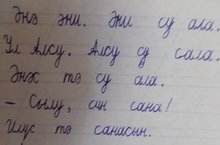 Әнә әни. Әни су ала.
Ул Алсу. Алсу су сала.
Әнә тә су ала.
– Сылу, син сана!
Илүс тә санасын.